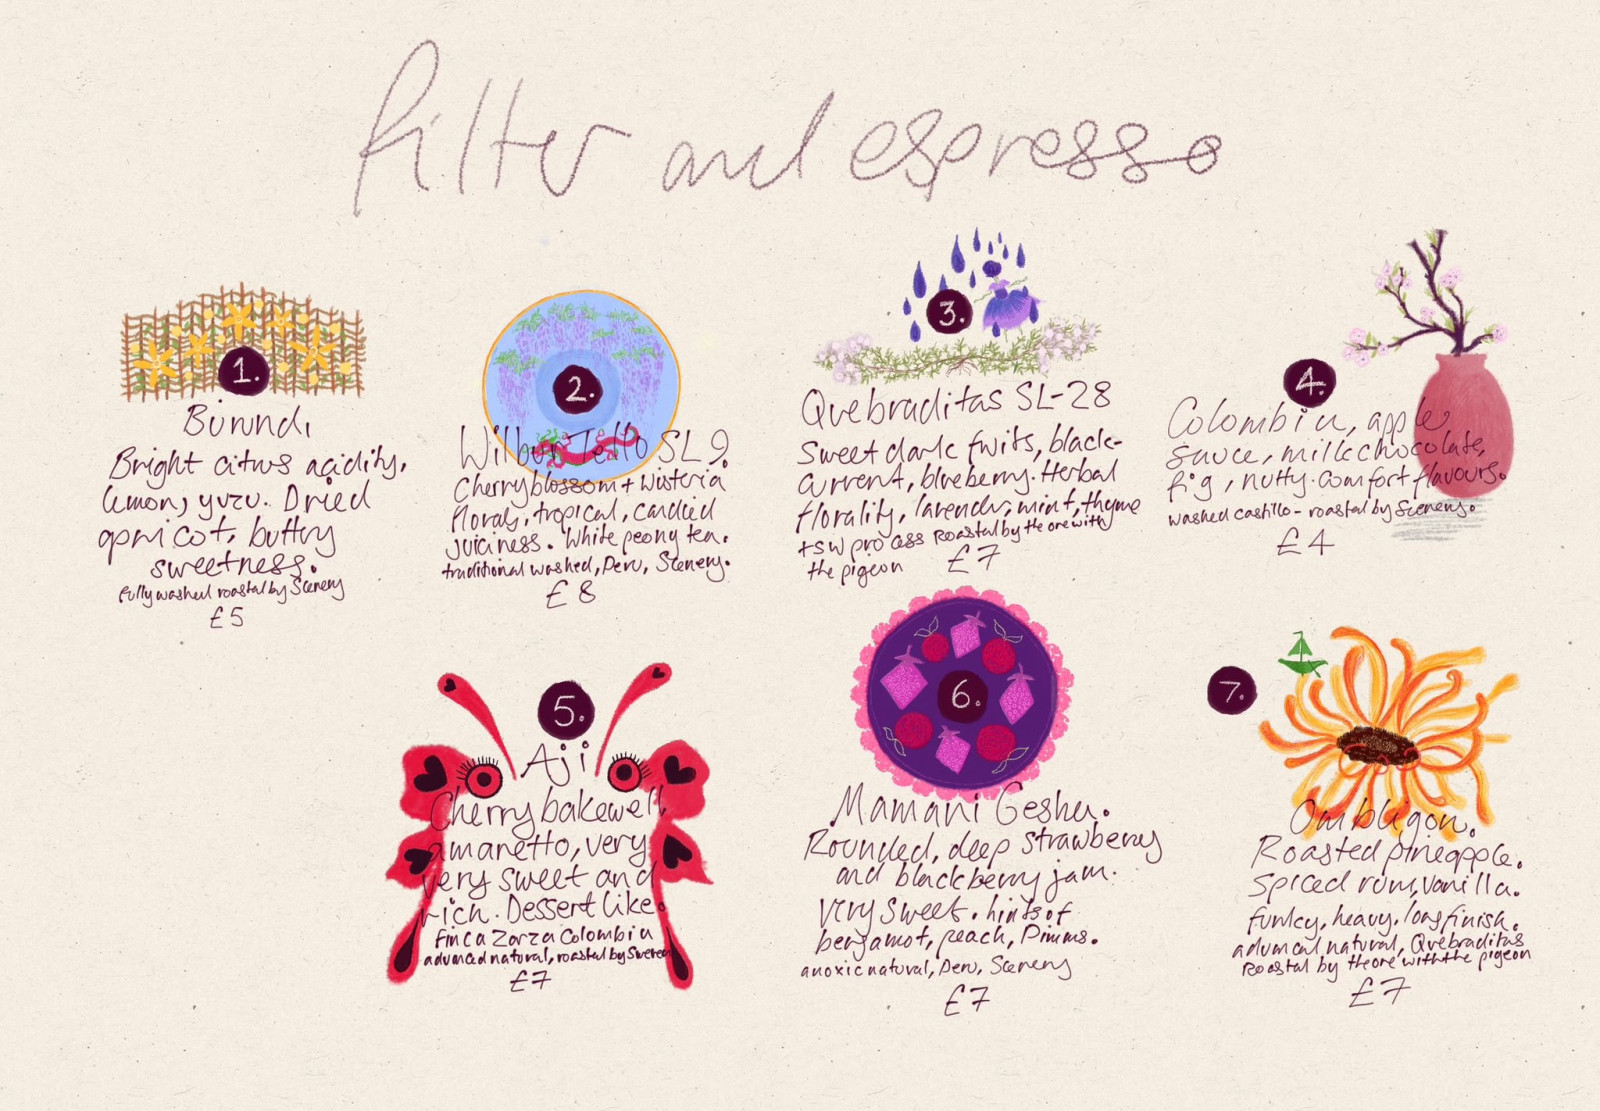 filter and espresso
1.
Burundi
Bright citrus acidity,
lemon, yuzu. Dried
apricot, buttry
sweetness.
fully washed roasted by Scenery
£5
2.
Wilbur Tello SL9.
Cherryblossom + Wisteria
florals, tropical, candied
juiciness. White peony tea.
traditional washed, Peru, Scenery.
£8
3.
Quebraditas SL-28
Sweet dark fruits, black-
current, blueberry. Herbal
florality, lavender, mint, thyme
tsw process Roasted by the one with
the pigeon £7
4.
Colombia, apple
sauce, milk chocolate,
fig, nutty. Comfort flavours.
washed castillo - roasted by Scenery.
£4
5.
Aji
Cherry bakewell
amaretto, very
very sweet and
rich. Dessert like.
Finca Zarza Colombia
advanced natural, roasted by
£7
6.
Mamani Gesha.
Rounded, deep strawberry
and blackberry jam.
Very sweet. hints of
bergamot, peach, Pimms.
anoxic natural, Peru, Scenery
£7
7.
Ombligon.
Roasted pineapple.
Spiced rum, vanilla.
funky, heavy. long finish.
advanced natural, Quebraditas
Roasted by the one with the pigeon
£7